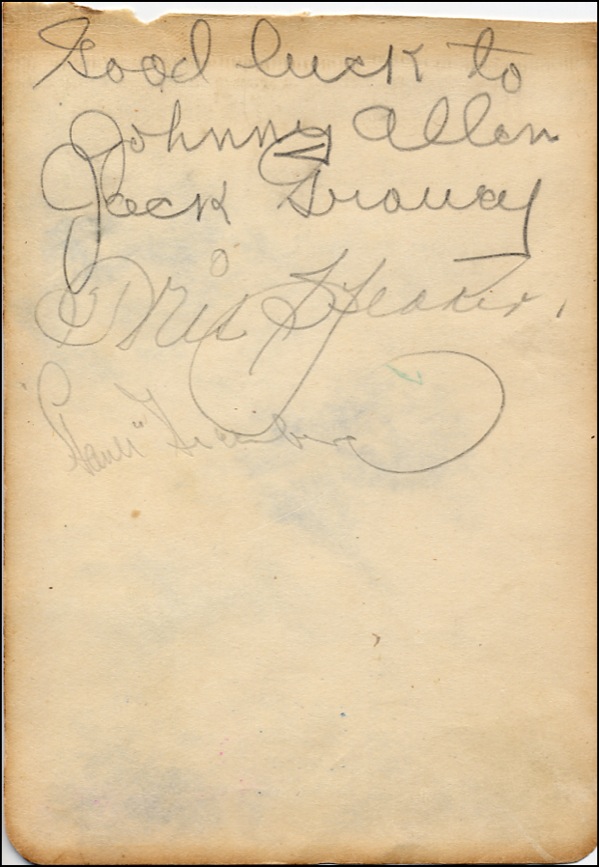 Good luck to
Johnny Allen
Jack Graney
Tris Speaker.
"Hank" Greenberg